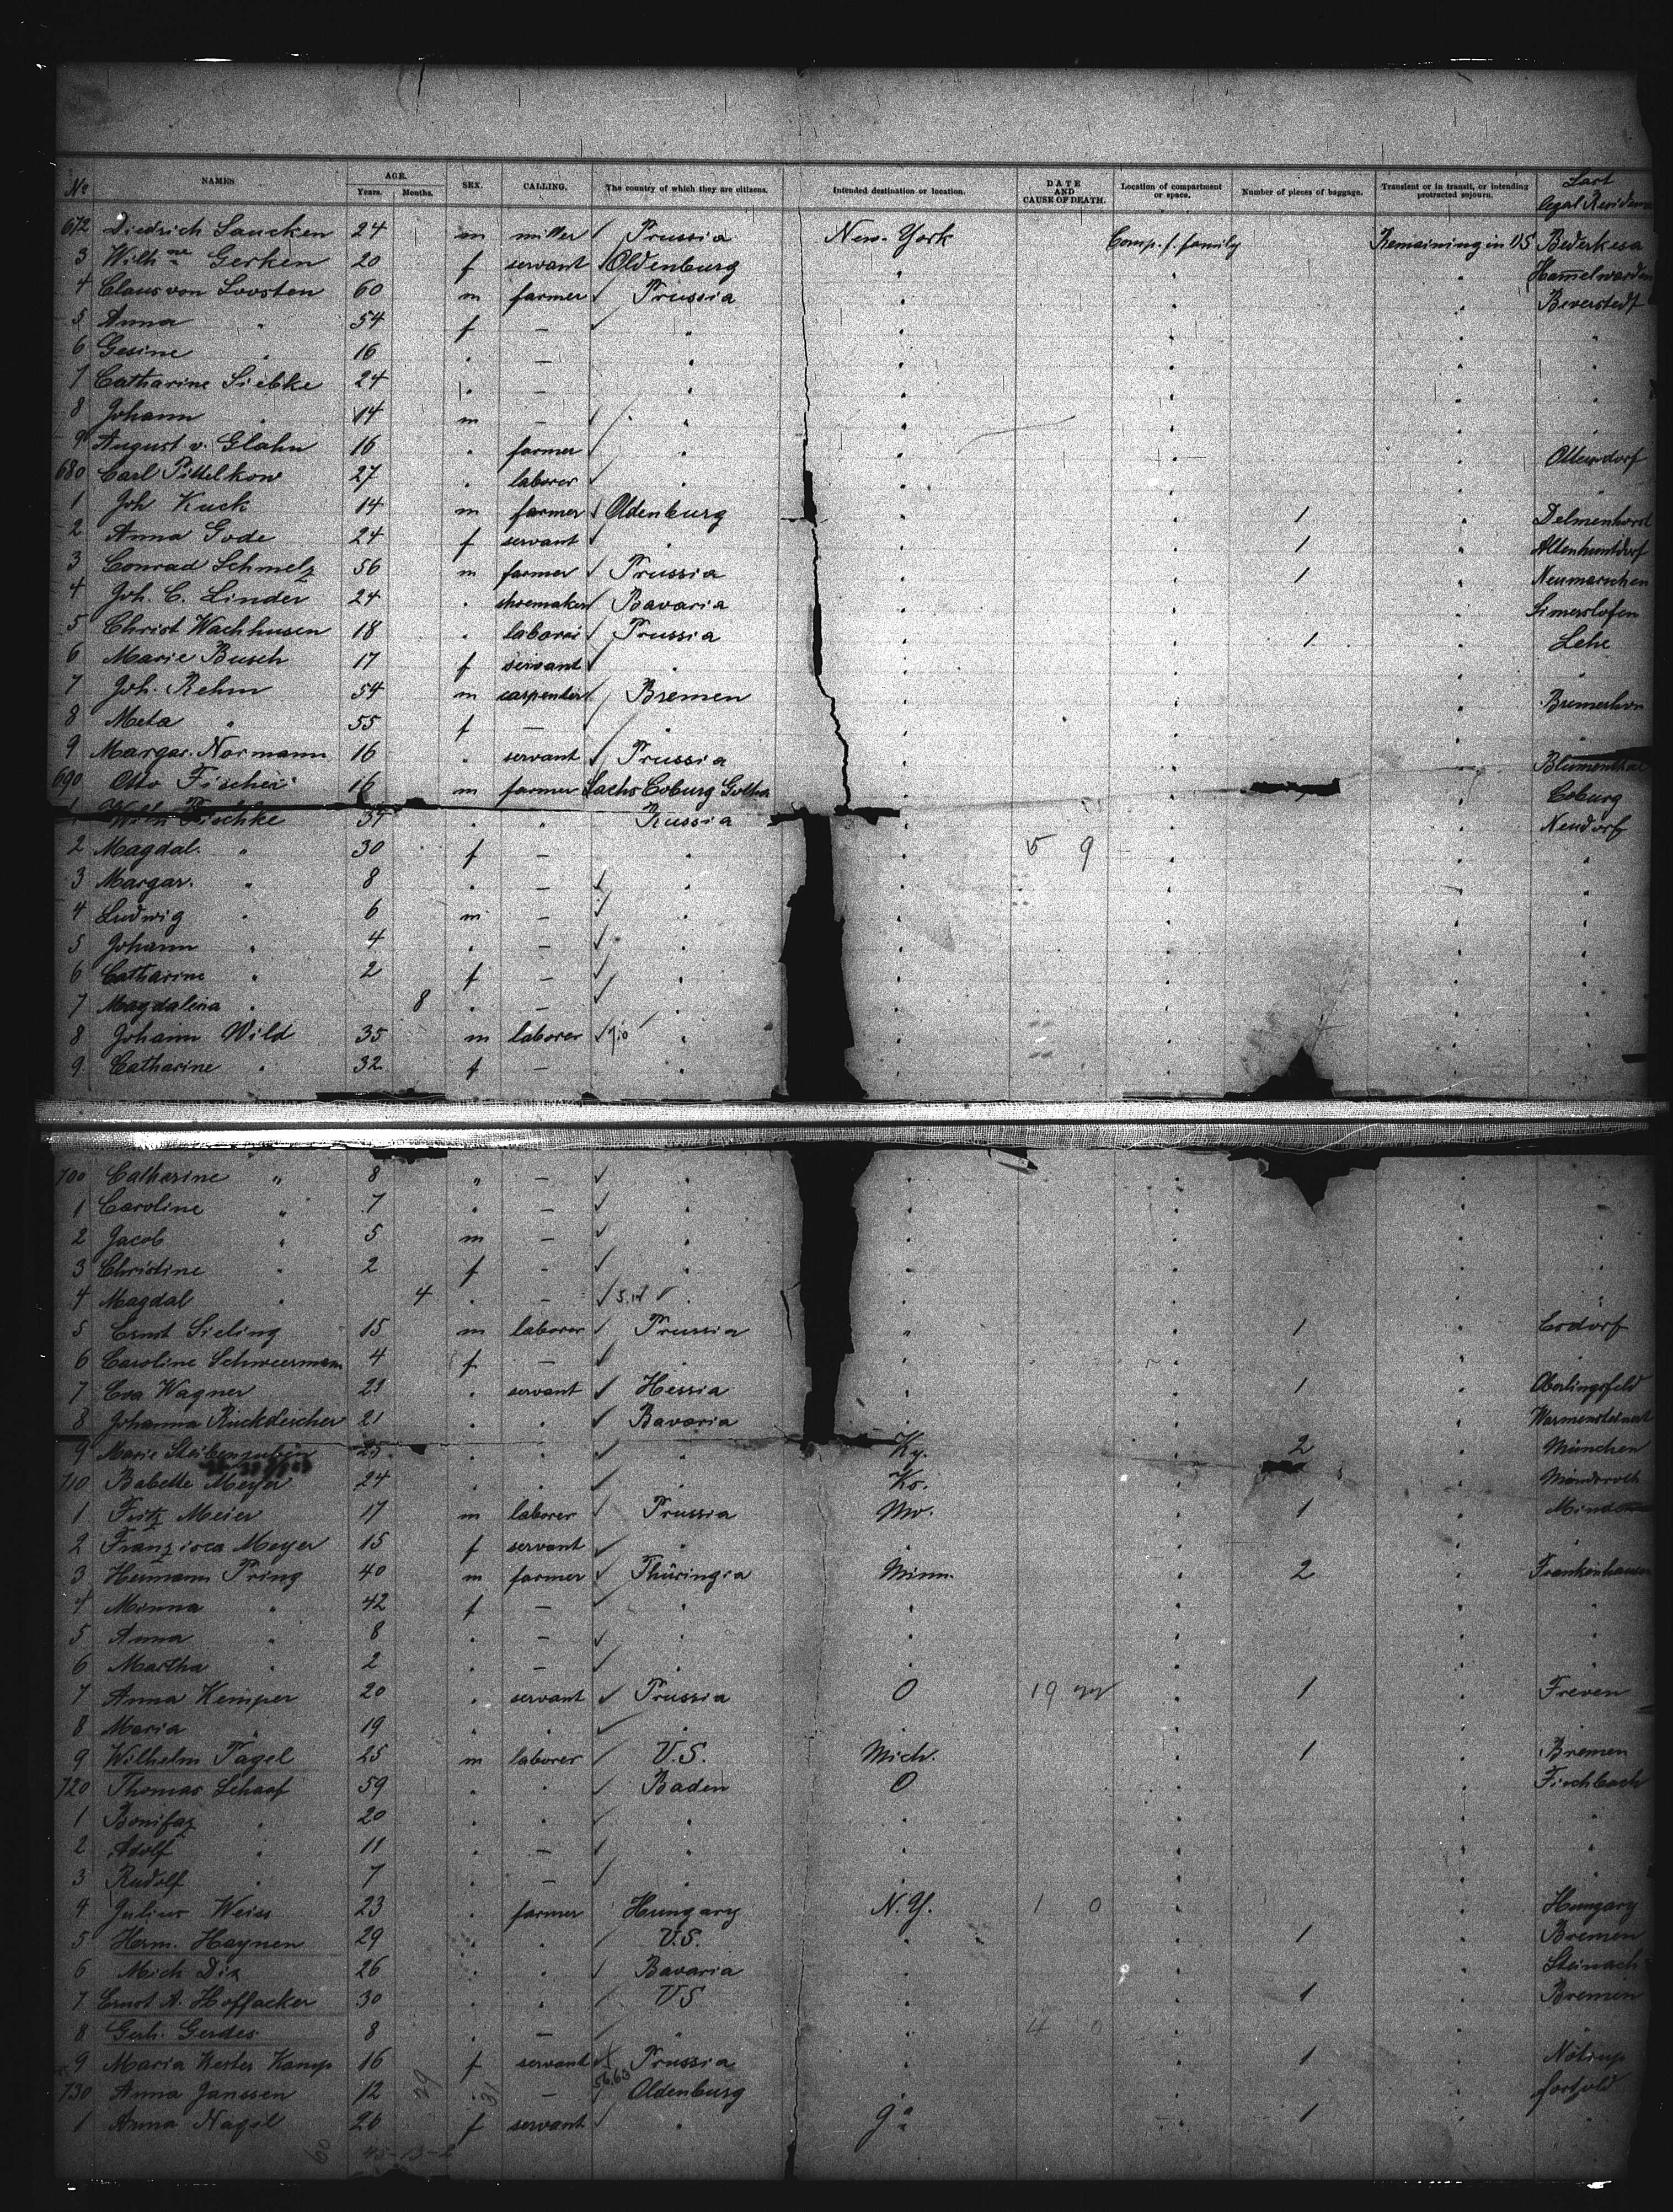 No NAMES AGE. Years. Months. SEX. CALLING. The country of which they are citizens. Intended destination or location. DATE AND CAUSE OF DEATH. Location of compartment or space. Number of pieces of baggage. Transient or in transit, or intending protracted sojourn. Last legal Residence
672 Diedrich Saucken 24 m miller Prussia New-York Comp. f. family Remaining in US Bederkesa
3 Wilhne Gerken 20 f servant Oldenburg " " " Hamelwarden
4 Claus von Soosten 60 m farmer Prussia " " " Beverstedt
5 Anna " 54 f — " " " "
6 Gesine " 16 " — " " " " "
7 Catharine Siebke 24 " — " " " " "
8 Johann " 14 m — " " " " "
9 August v. Glahn 16 " farmer " " " " Otterndorf
680 Carl Pittelkow 27 " laborer " " " " "
1 Joh Kuck 14 m farmer Oldenburg " " 1 " Delmenhorst
2 Anna Gode 24 f servant " " " 1 " Altenhuntdorf
3 Conrad Schmelz 56 m farmer Prussia " " 1 " Neumorschen
4 Joh. C. Linder 24 " shoemaker Bavaria " " "
5 Christ Wachhusen 18 " laborer Prussia " " 1 " Lehe
6 Marie Busch 17 f servant " " " " "
7 Joh. Rehm 54 m carpenter Bremen " " " Bremerhvn
8 Meta " 55 f — " " " " "
9 Margar. Normann 16 " servant Prussia " " " Blumenthal
690 Otto Fischer 16 m farmer Sachs Coburg Gotha " " " Coburg
1 Wilh Tischke 37 " " Russia " " " Neudorf
2 Magdal. " 30 f — " " 5 9 " " "
3 Margar. " 8 " — " " " " "
4 Ludwig " 6 m — " " " " "
5 Johann " 4 " — " " " " "
6 Catharine " 2 f — " " " " "
7 Magdalena " 8 " — " " " " "
8 Johann Wild 35 m laborer " " " " "
9 Catharine " 32 f — " " " " "
700 Catharine " 8 " — " " " " "
1 Caroline " 7 " — " " " " "
2 Jacob " 5 m — " " " " "
3 Christine " 2 f — " " " " "
4 Magdal " 4 " — " " " " "
5 Ernst Sieling 15 m laborer Prussia " " 1 " Erdorf
6 Caroline Schweermann 4 f — " " " " "
7 Eva Wagner 21 " servant Hessia " " 1 " Oberlingsfeld
8 Johanna Ruckdescher 21 " " Bavaria " " " Warmensteinach
9 Marie 25 " " " Ky. " 2 " München
710 Babette Meyer 24 " " " Ks. " "
1 Fritz Meier 17 m laborer Prussia Mo. " 1 " Minden
2 Franzisca Meyer 15 f servant " " " " "
3 Hermann Pring 40 m farmer Thüringia Minn. " 2 " Frankenhausen
4 Minna " 42 f — " " " " "
5 Anna " 8 " — " " " " "
6 Martha " 2 " — " " " " "
7 Anna Kemper 20 " servant Prussia O " 1 " Freven
8 Maria " 19 " " " " " " "
9 Wilhelm Pagel 25 m laborer U.S. Mich. " 1 " Bremen
720 Thomas Schaaf 59 " " Baden O " " Fischbach
1 Bonifaz " 20 " " " " " " "
2 Adolf " 11 " — " " " " "
3 Rudolf " 7 " — " " " " "
4 Julius Weiss 23 " farmer Hungary N.Y. 1 0 " " Hungary
5 Herm. Haynen 29 " " U.S. " " 1 " Bremen
6 Mich Dix 26 " " Bavaria " " " Steinach
7 Ernst A. Hoffacker 30 " " US " " 1 " Bremen
8 Gerh. Gerdes 8 " — " " 4 0 " " "
9 Maria Kester Kamp 16 f servant Prussia " " 1 " Nötrup
730 Anna Janssen 12 " — Oldenburg " " "
1 Anna Nagel 26 f servant " Ga " 1 " "